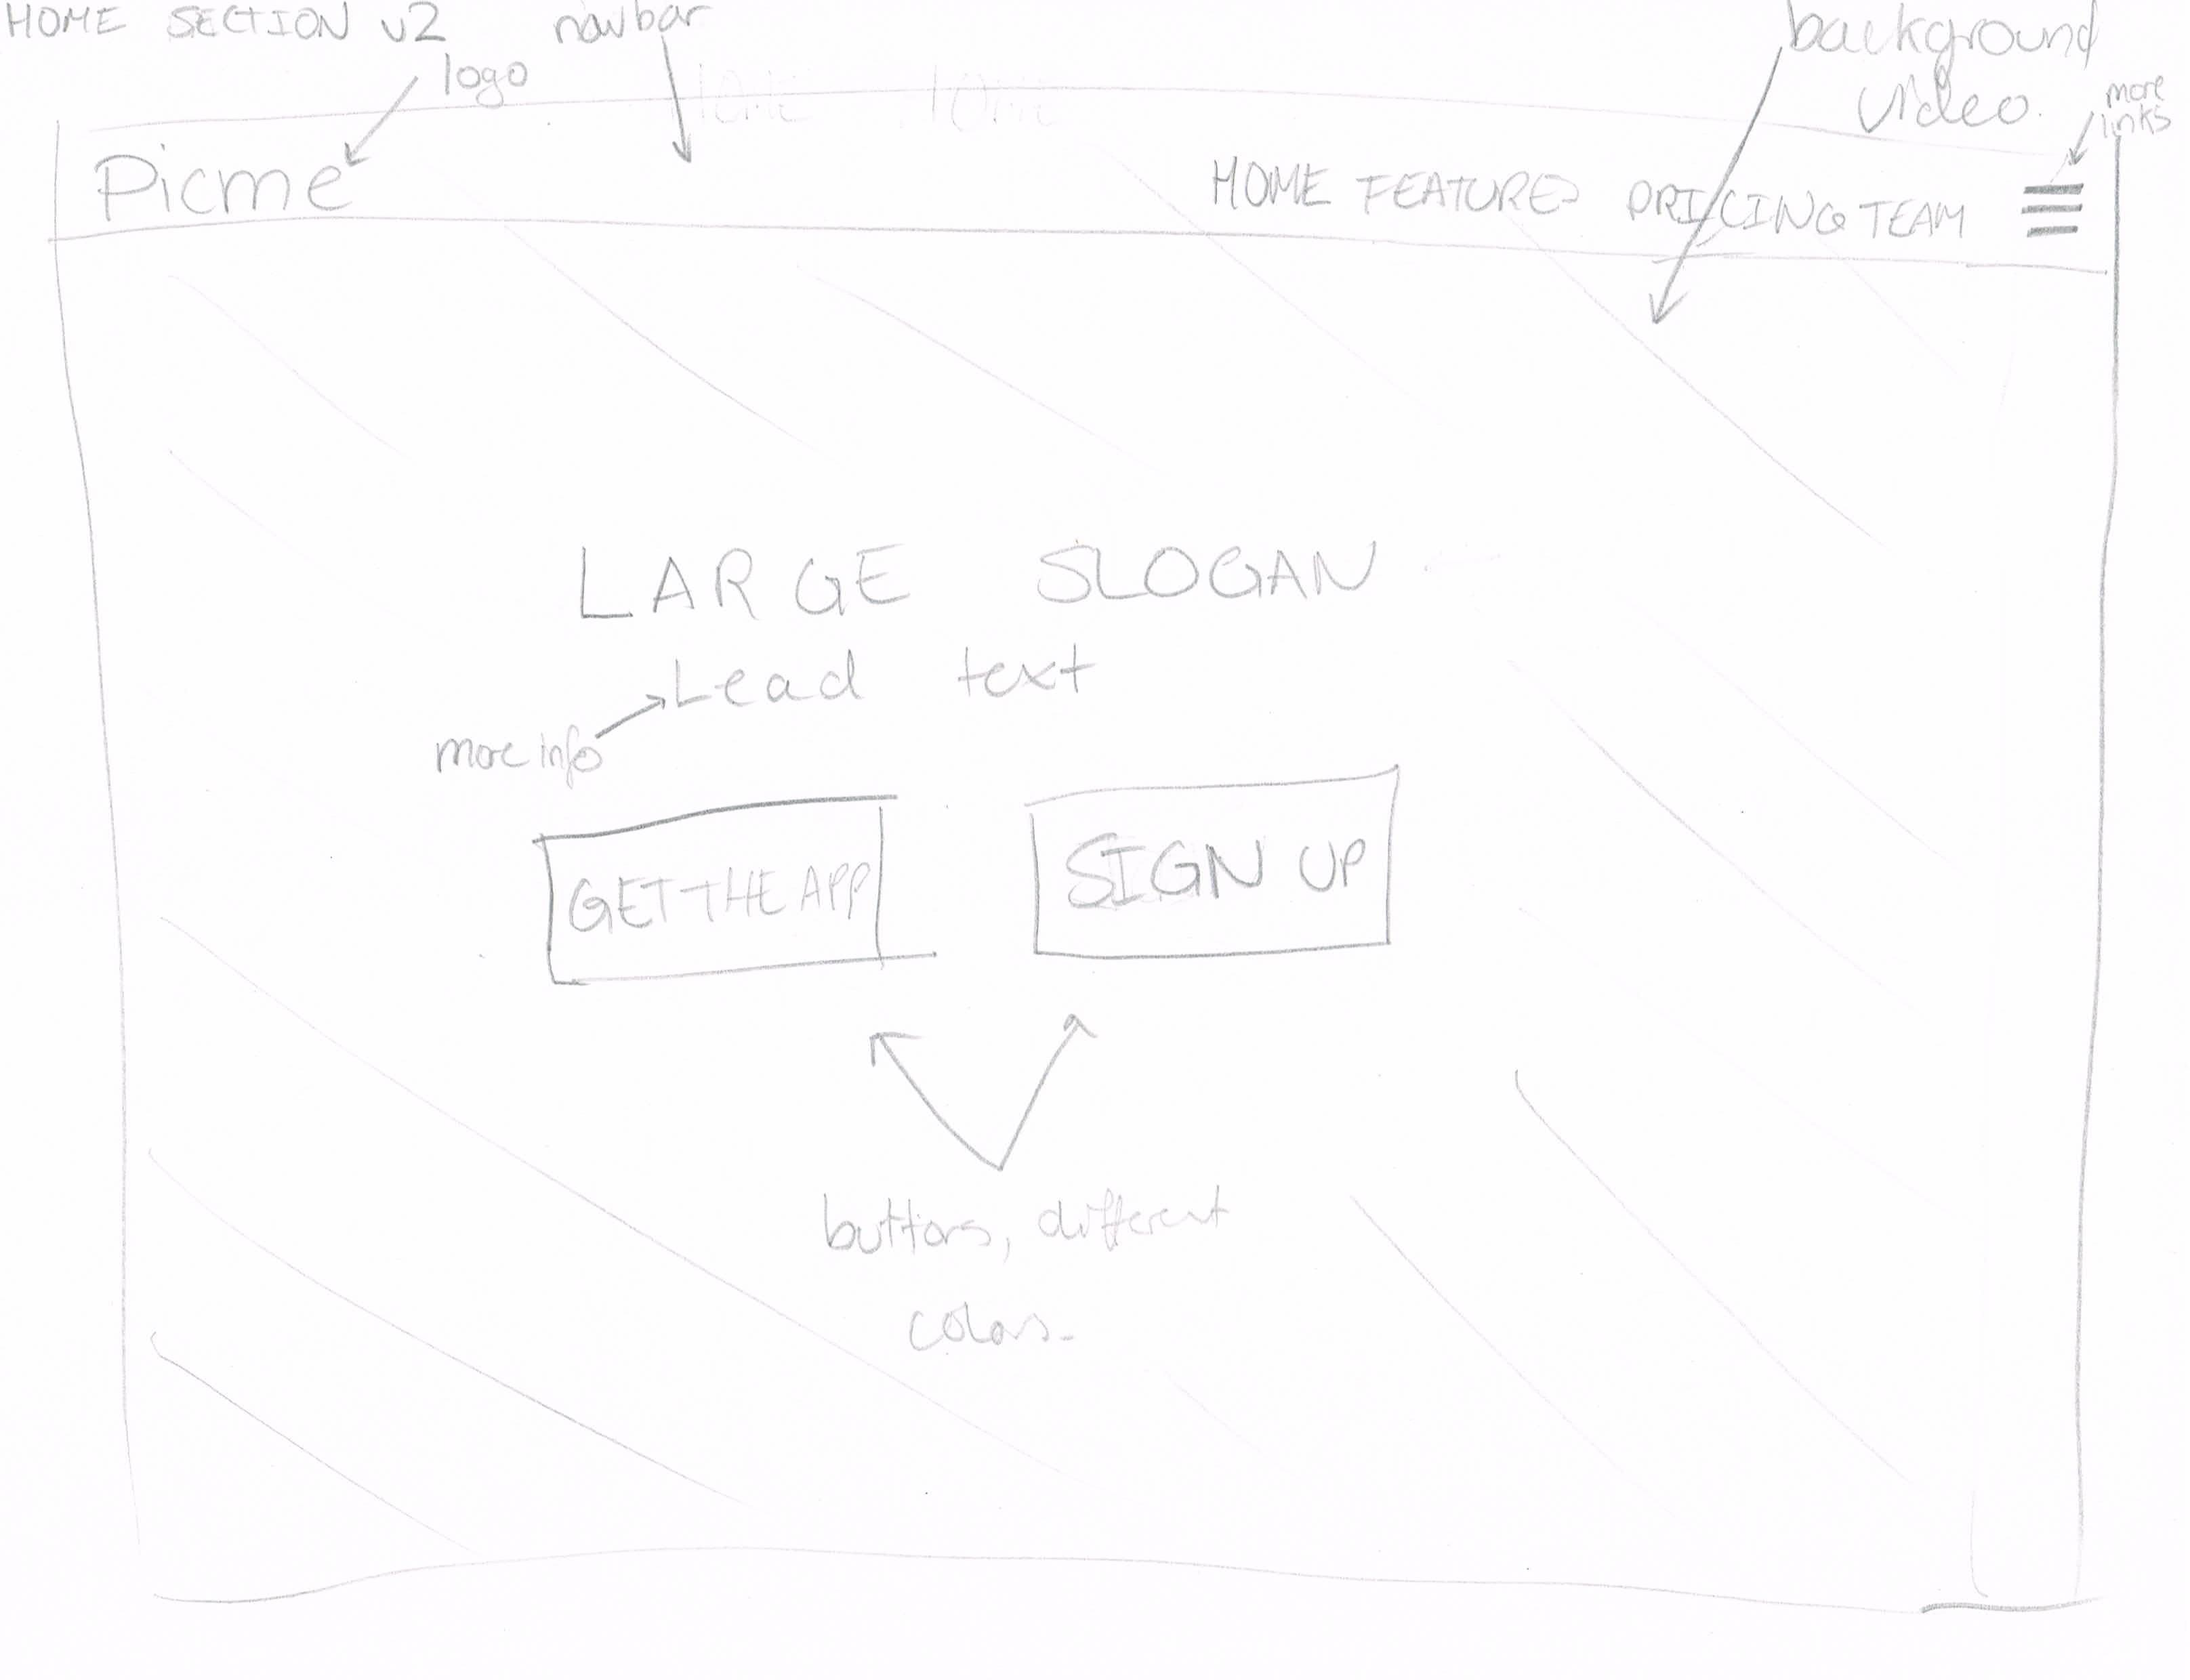 HOME SECTION v2
navbar
logo
background
video.
more
links
Picme
HOME FEATURES PRICING TEAM
LARGE SLOGAN
Lead text
more info
GET THE APP
SIGN UP
buttons, different
colors.